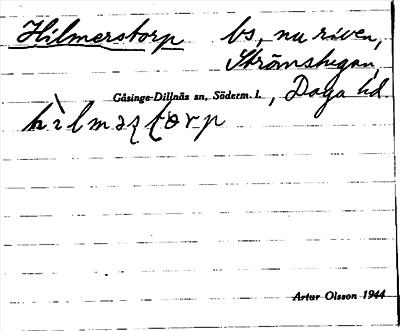 Hilmerstorp bs, nu riven,
Strömshugan,
Gåsinge-Dillnäs sn, Söderm. l., Daga hd
Artur Olsson 1944